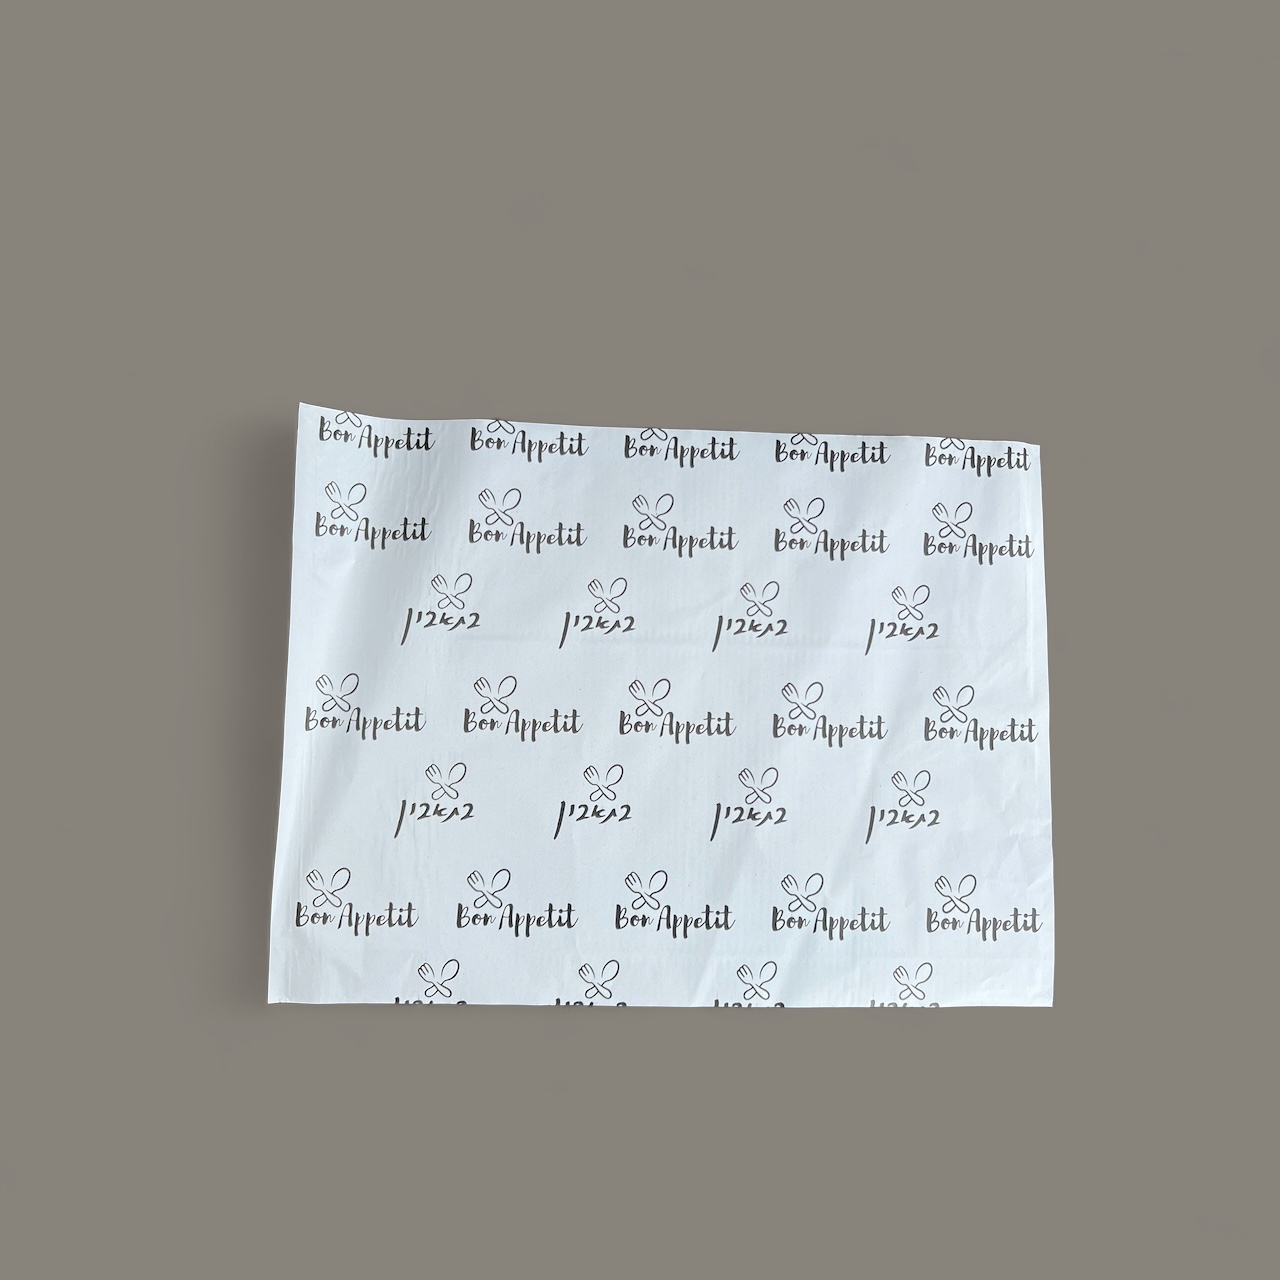 Bon Appetit Bon Appetit Bon Appetit Bon Appetit Bon Appetit
Bon Appetit Bon Appetit Bon Appetit Bon Appetit Bon Appetit
בתאבין בתאבין בתאבין בתאבין
Bon Appetit Bon Appetit Bon Appetit Bon Appetit Bon Appetit
בתאבין בתאבין בתאבין בתאבין
Bon Appetit Bon Appetit Bon Appetit Bon Appetit Bon Appetit